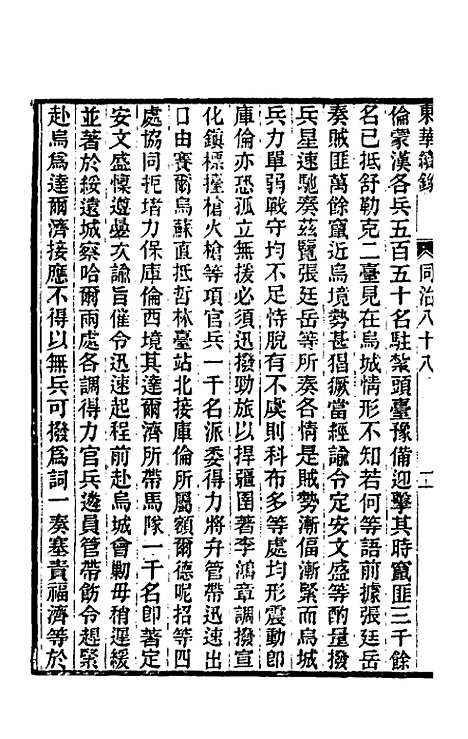 東華續錄　同治八十八　二
倫蒙漢各兵五百五十名駐紮頭臺豫備迎擊其時竄匪三千餘
名已抵舒勒克二臺見在烏城情形不知若何等語前據張廷岳
奏賊匪萬餘竄近烏境勢甚猖獗當經諭令定安文盛等酌量撥
兵星速馳奏茲覽張廷岳等所奏各情是賊勢漸偪漸緊而烏城
兵力單弱戰守均不足恃脫有不虞則科布多等處均形震動即
庫倫亦恐孤立無援必須迅撥勁旅以捍疆圉著李鴻章調撥宣
化鎮標擡槍火槍等項官兵一千名派委得力將弁管帶迅速出
口由賽爾烏蘇直抵哲林臺站北接庫倫所屬額爾德呢招等四
處協同扼堵力保庫倫西境其達爾濟所帶馬隊一千名即著定
安文盛懍遵曡次諭旨催令迅速起程前赴烏城會勦毋稍遲緩
並著於綏遠城察哈爾兩處各調得力官兵遴員管帶飭令趕緊
赴烏爲達爾濟接應不得以無兵可撥爲詞一奏塞責福濟等於